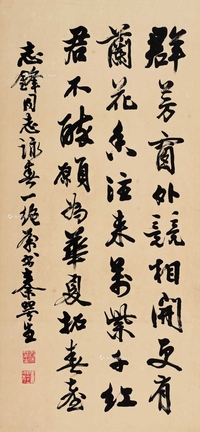 群芳窗外競相開更有
蘭花香往来萬紫千紅
君不醉願為華夏拓春臺
志鋒同志詠春一絕書秦咢生